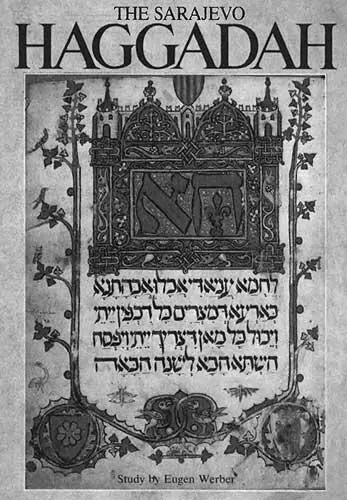 THE SARAJEVO
HAGGADAH
הא
לחמא עניא די אכלו אבהתנא
בארעא דמצרים כל דכפין ייתי
ויכול כל מאן דצריך ייתי ויפסח
השתא הכא לשנה הבאה
Study by Eugen Werber